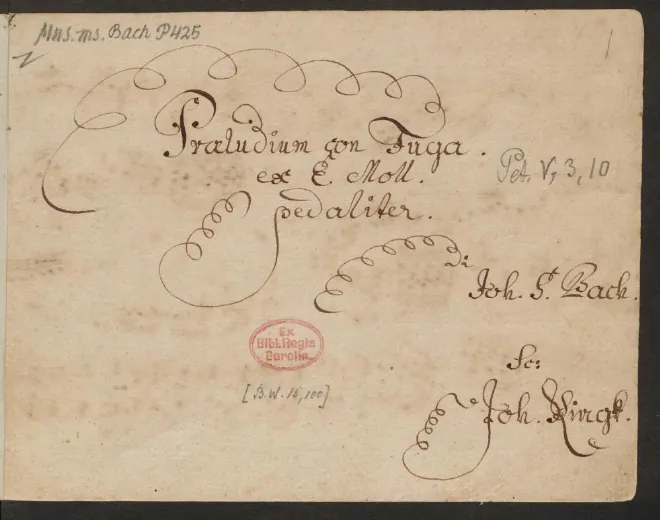 Mus. ms. Bach P 425
1
Præludium con Fuga.
ex E. Moll.
Pet. V, 3, 10
pedaliter.
di
Joh. S. Bach.
Ex
Bibl. Regia
Berolin.
[B.W. 15, 100]
Sc:
Joh. Ringk.